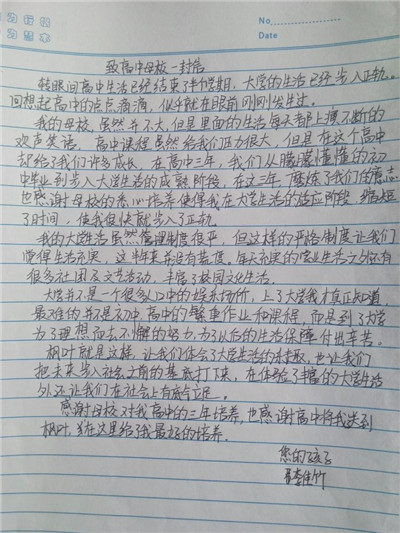 为行民
为意本
No
Date
致高中母校一封信
转眼间高中生活已经结束了半个学期，大学的生活已经步入正轨。
回想起高中的点点滴滴，似乎就在眼前刚刚发生过。
我的母校，虽然并不大，但是里面的生活每天都上演不断的
欢声笑语。高中课程虽然给我们压力很大，但是在这个高中
却给了我们许多成长，在高中三年，我们从朦朦懂懂的初
中毕业到步入大学生活的成熟阶段，在这三年，磨炼了我们的意志
也感谢母校的悉心培养使得我在大学生活的适应阶段，缩短
了时间，使我很快就步入了正轨。
我的大学生活虽然管理制度很严，但这样的严格制度让我们
觉得生活充实，这半年来没有荒废。每天充实的学业生活之外还有
很多社团及文艺活动，丰富了校园文化生活。
大学并不是一个很多人口中的娱乐场所，上了大学我才真正知道
最难的并不是初中，高中的繁重作业和课程，而是到了大学
为了理想而去不懈的努力，为了以后的生活保障付出辛苦。
枫叶就是这样，让我们体会了大学生活的精彩，也让我们
把未来步入社会之前的基底打下来，在体验了丰富的大学生活
外还让我们在社会上有底气立足。
感谢母校对我高中的三年培养，也感谢高中将我送到
枫叶，在这里给了我最好的培养。
您的孩子
李佳竹